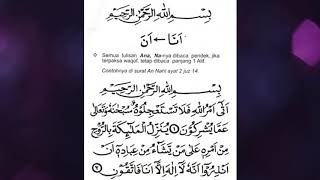 بِسْمِ اللّٰهِ الرَّحْمٰنِ الرَّحِيْمِ
اَنَا ← اَنَ
Semua tulisan Ana, Na-nya dibaca pendek, jika
terpaksa waqof, tetap dibaca panjang 1 Alif.
Contohnya di surat An Nahl ayat 2 juz 14.
بِسْمِ اللّٰهِ الرَّحْمٰنِ الرَّحِيْمِ
اَتٰٓى اَمْرُ اللّٰهِ فَلَا تَسْتَعْجِلُوْهُ سُبْحٰنَهٗ وَتَعٰلٰى
عَمَّا يُشْرِكُوْنَ ١ يُنَزِّلُ الْمَلٰٓئِكَةَ بِالرُّوْحِ
مِنْ اَمْرِهٖ عَلٰى مَنْ يَّشَاۤءُ مِنْ عِبَادِهٖٓ اَنْ
اَنْذِرُوْٓا اَنَّهٗ لَآ اِلٰهَ اِلَّآ اَنَا فَاتَّقُوْنِ ٢